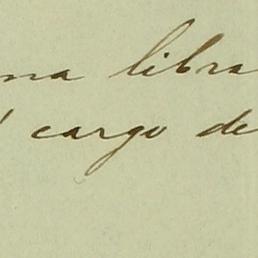 na libra
cargo de